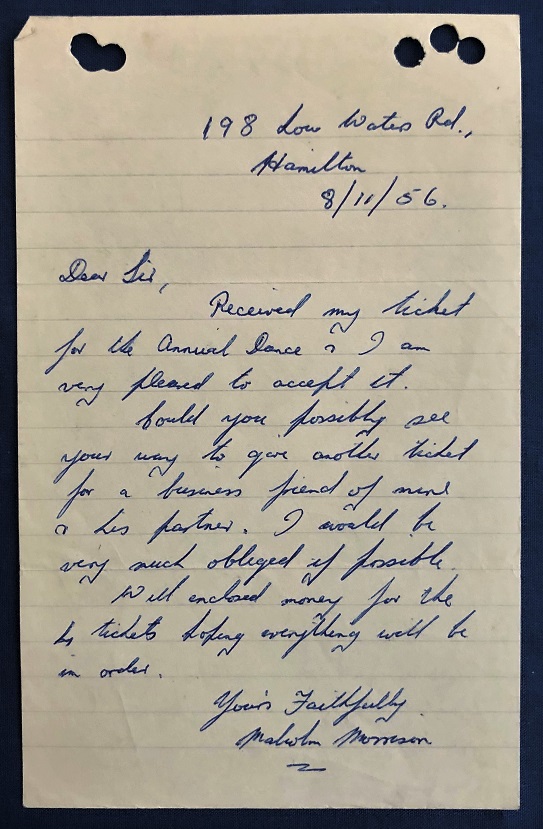 198 Low Waters Rd.,
Hamilton
8/11/56.
Dear Sir,
Received my ticket
for the Annual Dance & I am
very pleased to accept it.
Could you possibly see
your way to give another ticket
for a business friend of mine
& his partner. I would be
very much obliged if possible.
Will enclosed money for the
4 tickets hoping everything will be
in order.
Yours Faithfully
Malcolm Morrison